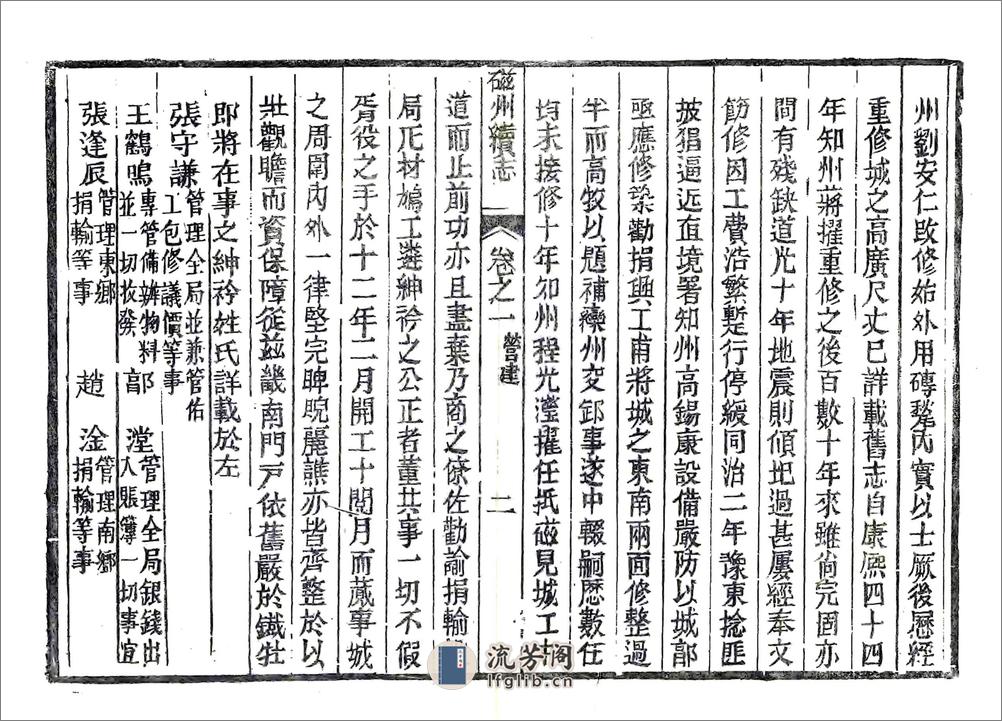 州劉安仁改修始外用磚甃內實以土厥後歷經
重修城之高廣尺丈已詳載舊志自康熙四十四
年知州蔣擢重修之後百數十年來雖尚完固亦
間有殘缺道光十年地震則傾圯過甚屢經奉文
飭修因工費浩繁暫行停緩同治二年豫東捻匪
披猖逼近直境署知州高錫康設備嚴防以城郭
亟應修築勸捐興工甫將城之東南兩面修整過
半而高牧以題補灤州交卸事遂中輟嗣歷數任
均未接修十年知州程光瀅擢任抵磁見城工
磁州續志
卷之一 營建
二
道而止前功亦且盡棄乃商之僚佐勸諭捐輸
局庀材鳩工遴紳衿之公正者董其事一切不假
胥役之手於十二年二月開工十閱月而蕆事城
之周圍內外一律堅完睥睨麗譙亦皆齊整於以
壯觀瞻而資保障從茲畿南門戶依舊嚴於鐵牡
即將在事之紳衿姓氏詳載於左
張守謙 管理全局並兼管估
工包修議價等事
王鶴鳴 專管備辦物料
並一切收發
郭瀅 管理全局銀錢出
入賬簿一切事宜
張逢辰 管理東鄉
捐輸等事
趙淦 管理南鄉
捐輸等事
流芳閣
lfglib.cn